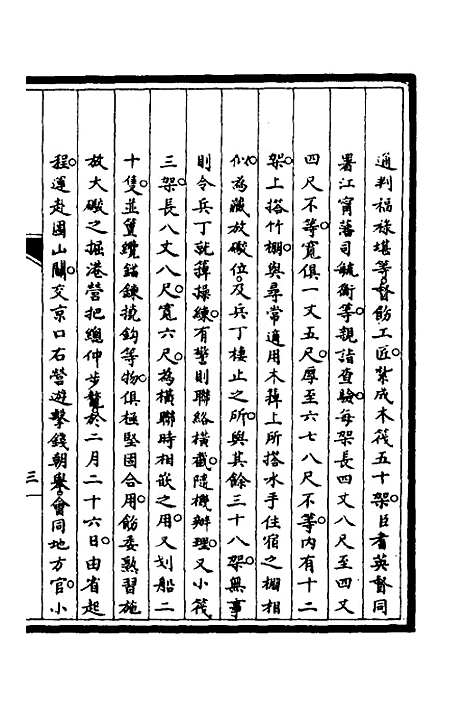 通判福祿堪等督飭工匠紮成木筏五十架臣耆英督同
署江甯藩司毓衡等親詣查驗每架長四丈八尺至四丈
四尺不等寬俱一丈五尺厚至六七八尺不等內有十二
架上搭竹棚與尋常通用木簰上所搭水手住宿之棚相
似為藏放礮位及兵丁棲止之所與其餘三十八架無事
則令兵丁就簰操練有警則聯絡橫截隨機辦理又小筏
三架長八丈八尺寬六尺為橫聯時相嵌之用又划船二
十隻並篾纜錨鍊撓鈎等物俱極堅固合用飭委熟習施
放大礮之掘港營把總仲步鰲於二月二十六日由省起
程運赴圌山關交京口右營遊擊錢朝舉會同地方官小
三